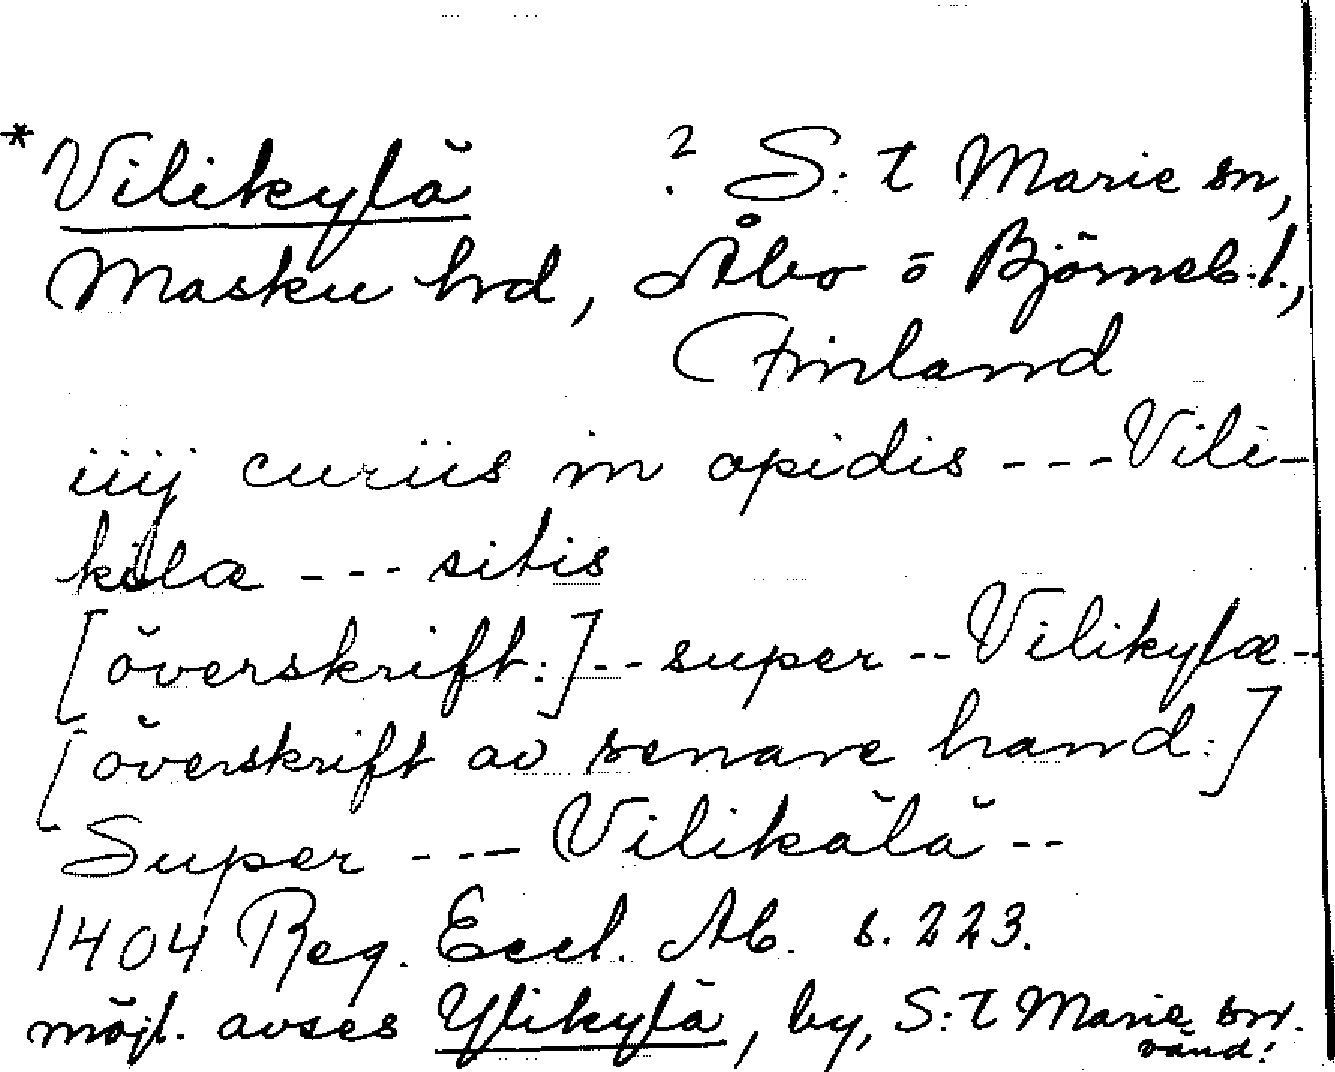 *Vilikylä ? S:t Marie sn,
Masku hrd, Åbo o Björneb.l.,
Finland
iiij curiis in opidis --- Vili-
kylæ --- sitis
[överskrift:] -- super -- Vilikylæ --
[överskrift av senare hand:]
Super --- Vilikälä --
1404 Reg. Eccl. Ab. s. 223.
möjl. avses Ylikylä, by, S:t Marie sn.
vänd!